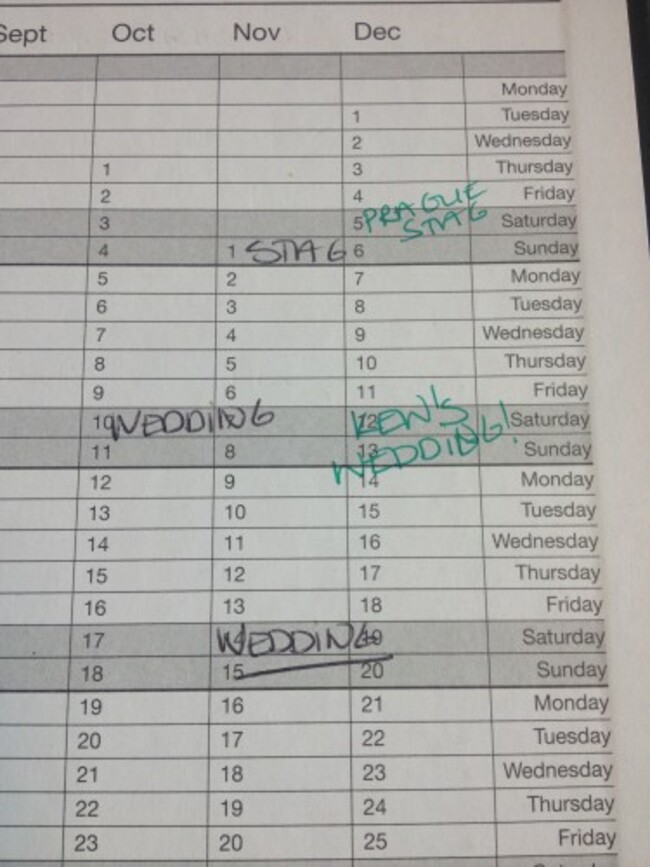 Sept Oct Nov Dec
Monday
1 Tuesday
2 Wednesday
1 3 Thursday
2 4 Friday
3 5 PRAGUE STAG Saturday
4 1 STAG 6 Sunday
5 2 7 Monday
6 3 8 Tuesday
7 4 9 Wednesday
8 5 10 Thursday
9 6 11 Friday
10 WEDDING 12 KEW'S Saturday
11 8 13 WEDDING! Sunday
12 9 14 Monday
13 10 15 Tuesday
14 11 16 Wednesday
15 12 17 Thursday
16 13 18 Friday
17 WEDDING 19 Saturday
18 15 20 Sunday
19 16 21 Monday
20 17 22 Tuesday
21 18 23 Wednesday
22 19 24 Thursday
23 20 25 Friday